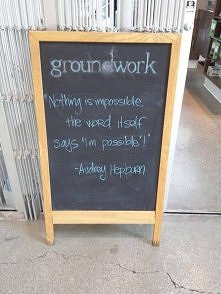 groundwork
"Nothing is impossible,
the word itself
says "i'm possible"!"
-Audrey Hepburn